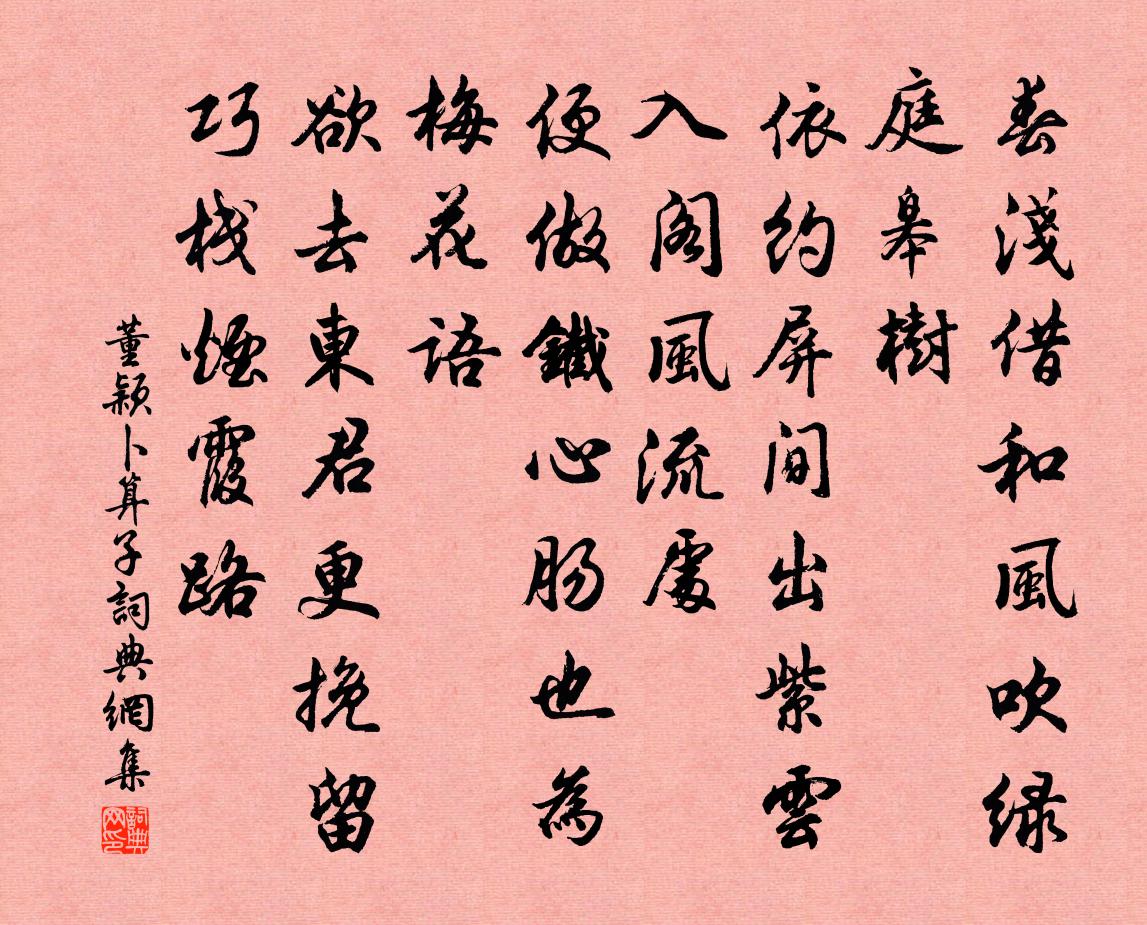 春淺借和風吹綠
庭皋樹
依約屏間出紫雲
入閣風流處
便做鐵心肠也為
梅花語
欲去東君更挽留
巧棧煙霞路
董穎卜算子詞典網集
詞典网印